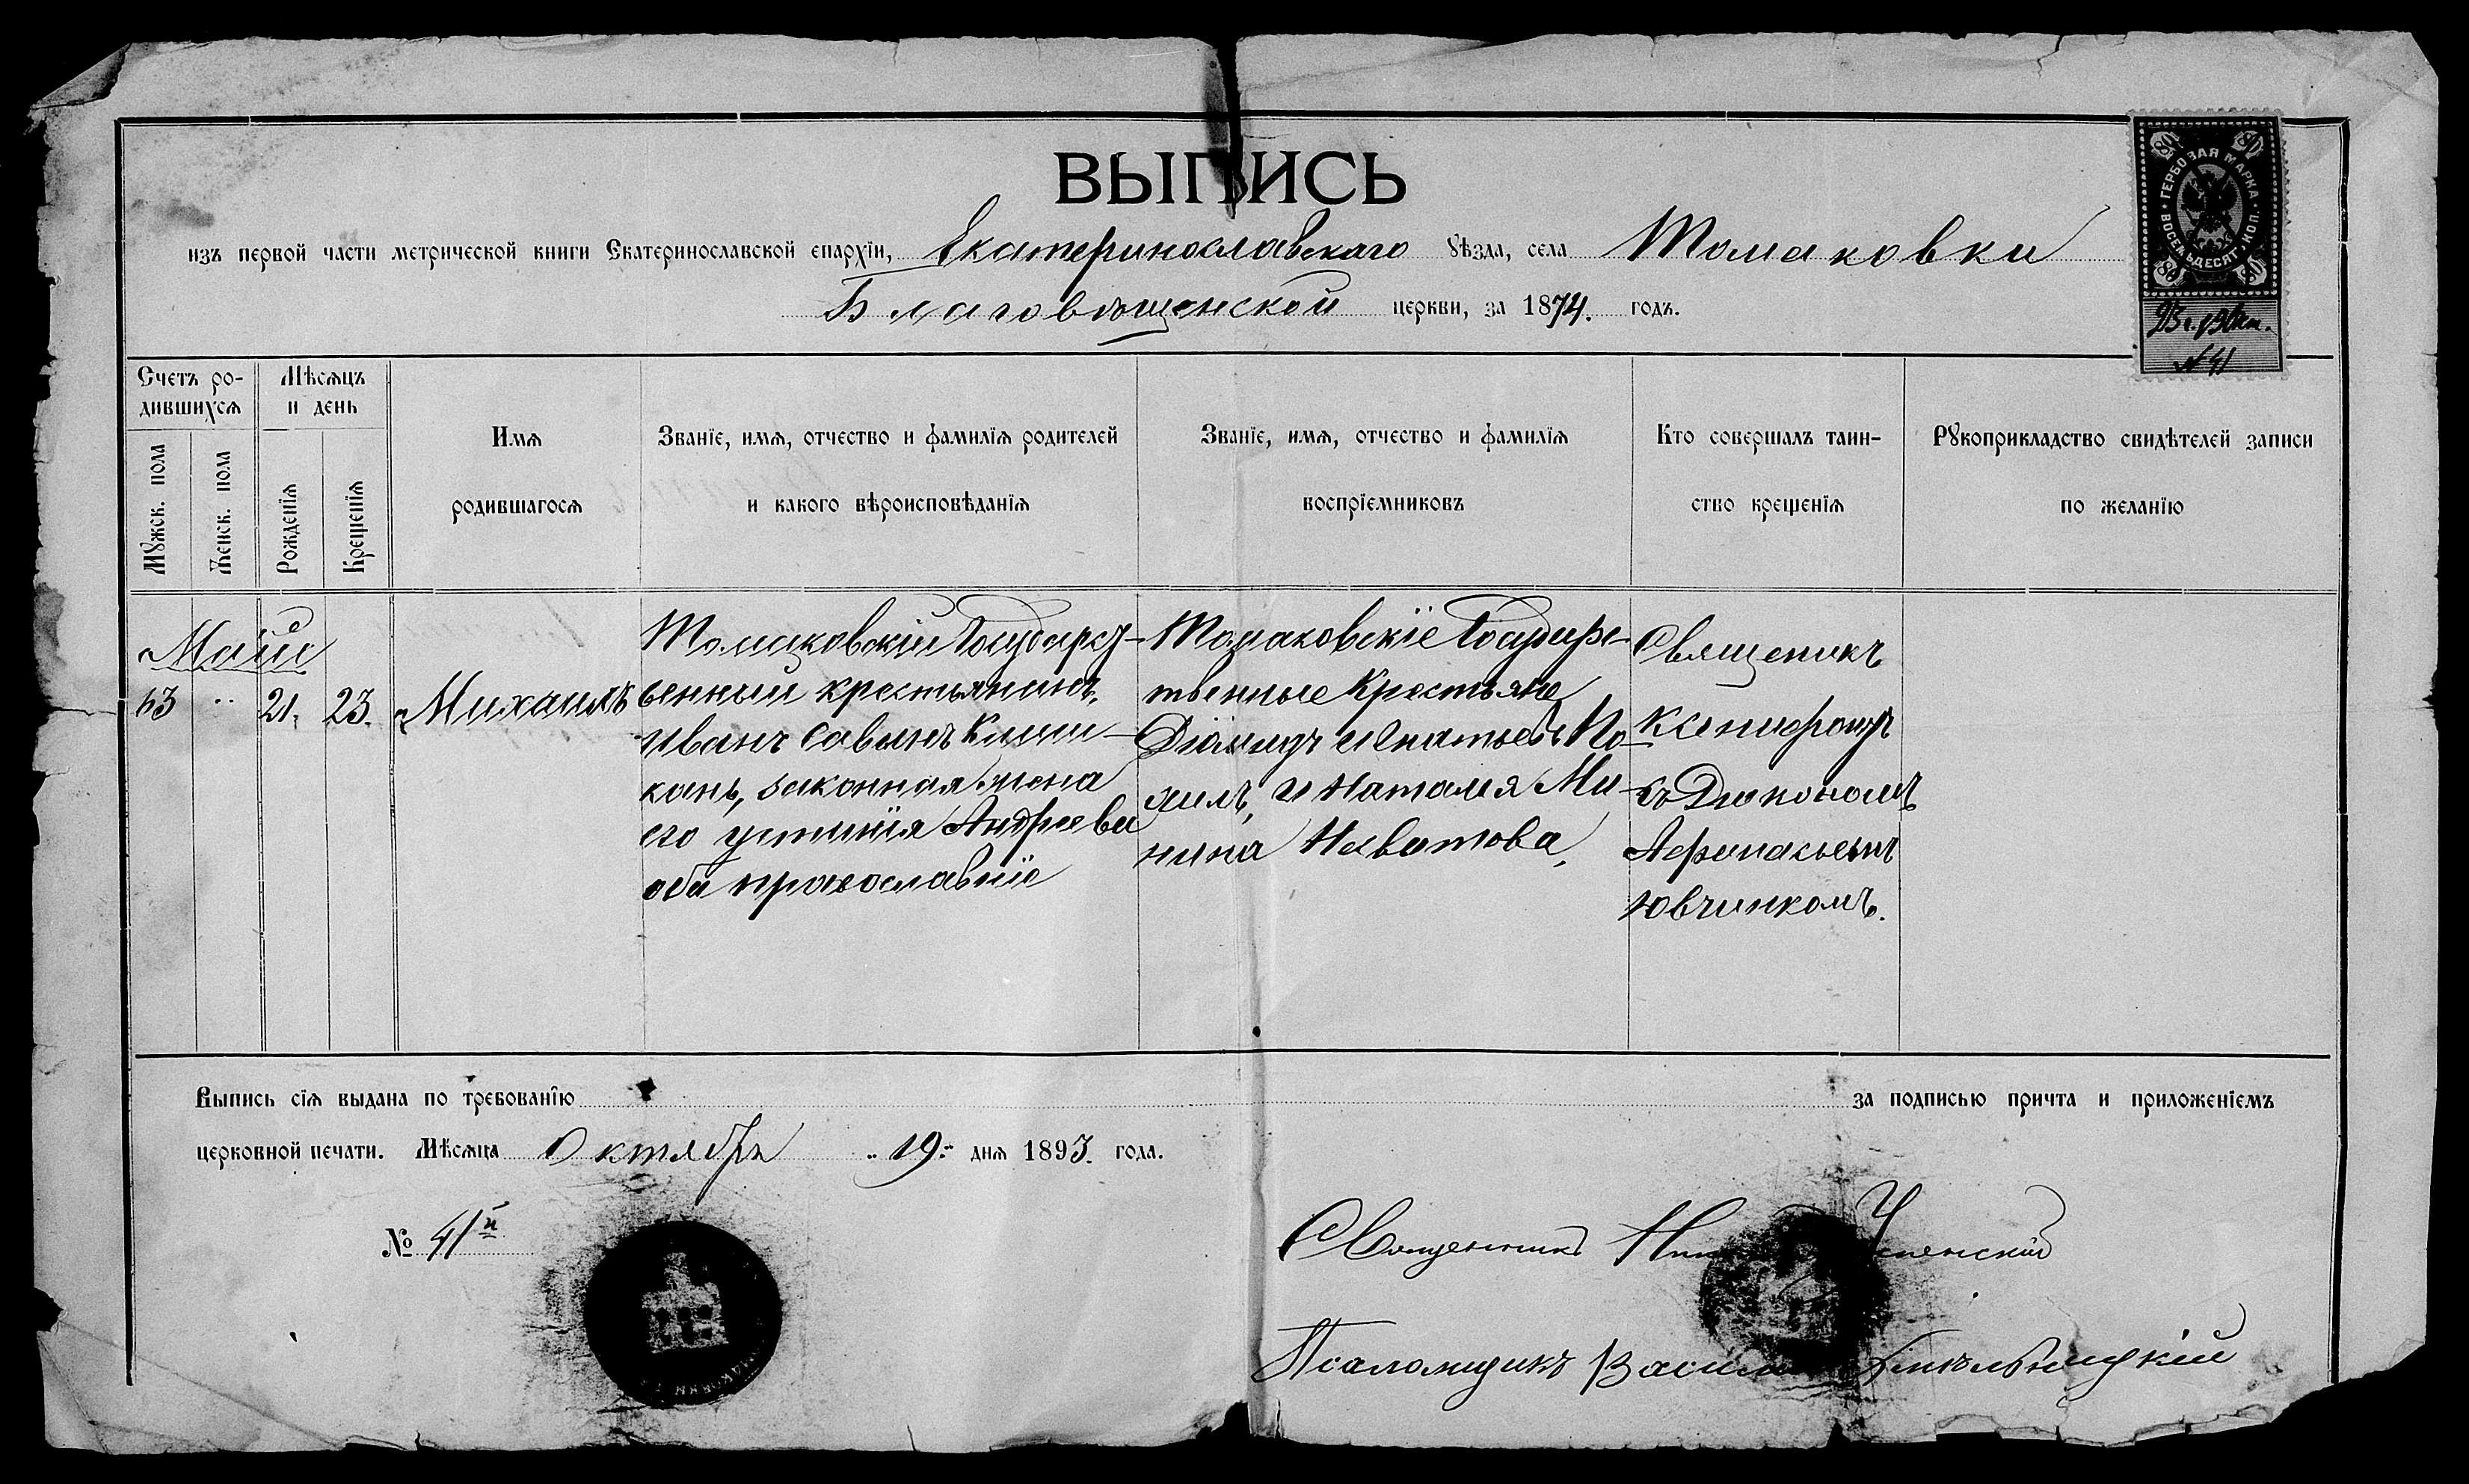 ВЫПИСЬ
изъ первой части метрической книги Екатеринославской епархіи, Екатеринославскаго уѣзда, села Томаковки
Благовѣщенской церкви, за 1874. годъ.
ГЕРБОВАЯ МАРКА
ВОСЕМЬДЕСЯТ КОП.
80 80
80 80
№ 41
Счетъ ро-
дившихся
Мѣсяцъ
и день
Мужск. пола
Женск. пола
Рожденія
Крещенія
Имя
родившагося
Званіе, имя, отчество и фамилія родителей
и какого вѣроисповѣданія
Званіе, имя, отчество и фамилія
воспріемниковъ
Кто совершалъ таин-
ство крещенія
Рукоприкладство свидѣтелей записи
по желанію
Маія
63 21, 23. Михаилъ
Томаковскій Государст-
венный крестьянинъ,
Иванъ Савинъ
кань, законная жена
его Устинія Андреева
оба православніе
Томаковскіе Государс-
твенные Крестьяне
Игнатьевъ
и Наталія Ми-
нина
Священикъ
съ Діакономъ
Афанасьемъ
Ювченкомъ.
Выпись сія выдана по требованію за подписью причта и приложеніемъ
церковной печати. Мѣсяца Октября 19 дня 1893. года.
№ 41й
Священникъ Успенскій
Псаломщикъ